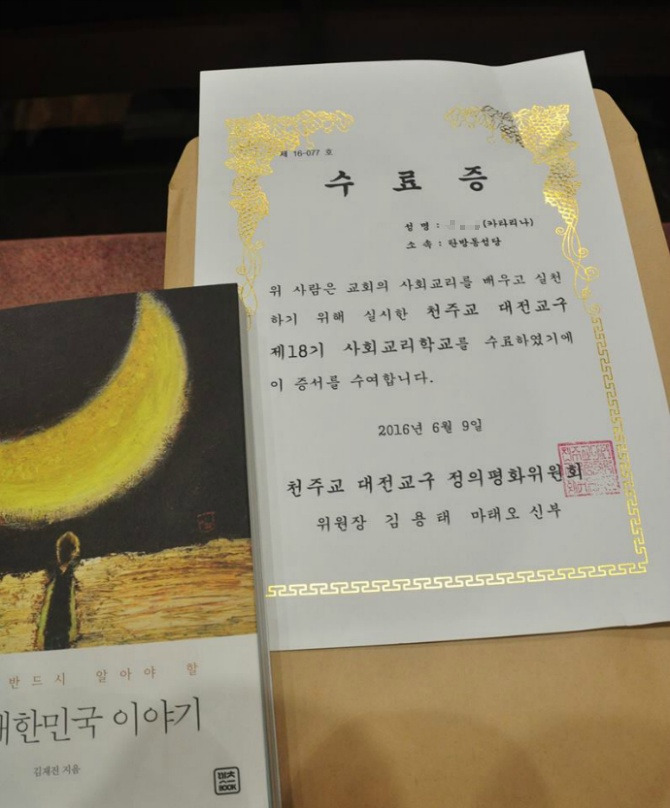 제 16-077 호
수 료 증
성 명 : (카타리나)
소 속 : 탄방동성당
위 사람은 교회의 사회교리를 배우고 실천
하기 위해 실시한 천주교 대전교구
제18기 사회교리학교를 수료하였기에
이 증서를 수여합니다.
2016년 6월 9일
천주교 대전교구 정의평화위원회
위원장 김 용 태 마태오 신부
반드시 알아야 할
대한민국 이야기
김재진 지음
BOOK